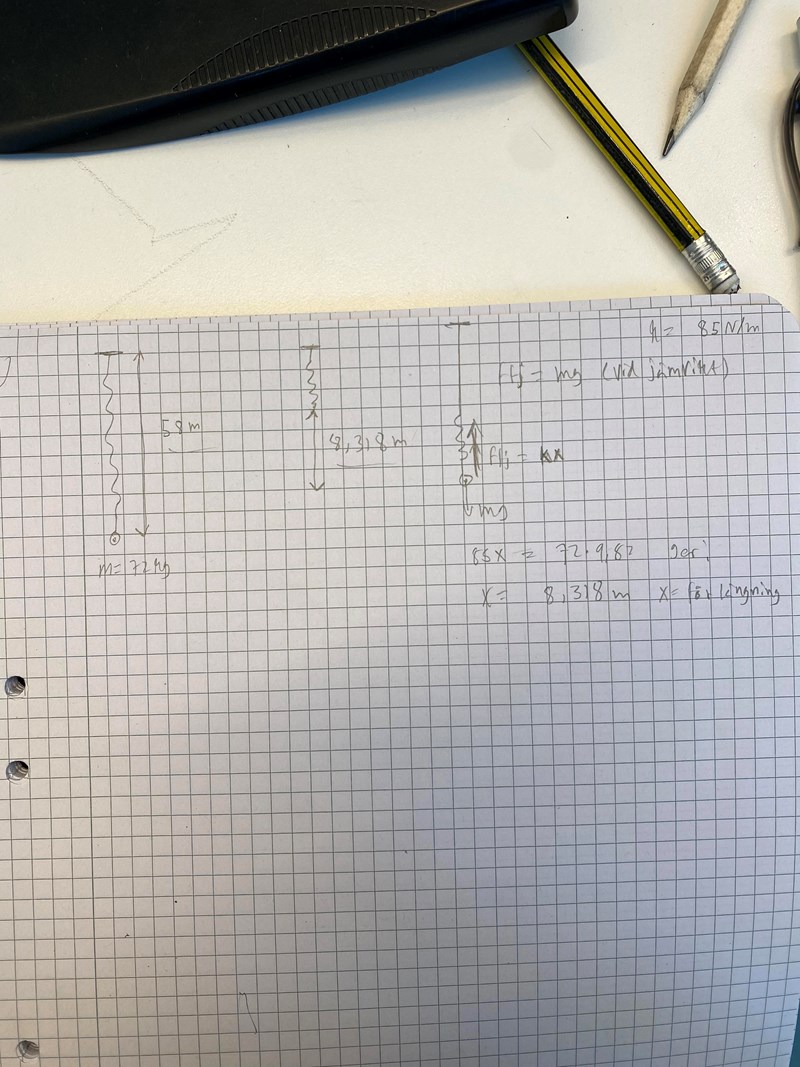 k = 85 N/m
Ffj = mg (vid jämvikt)
58 m
8,318 m
Ffj = kx
mg
m = 72 kg
85x = 72·9,82 ger:
x = 8,318 m x = förlängning